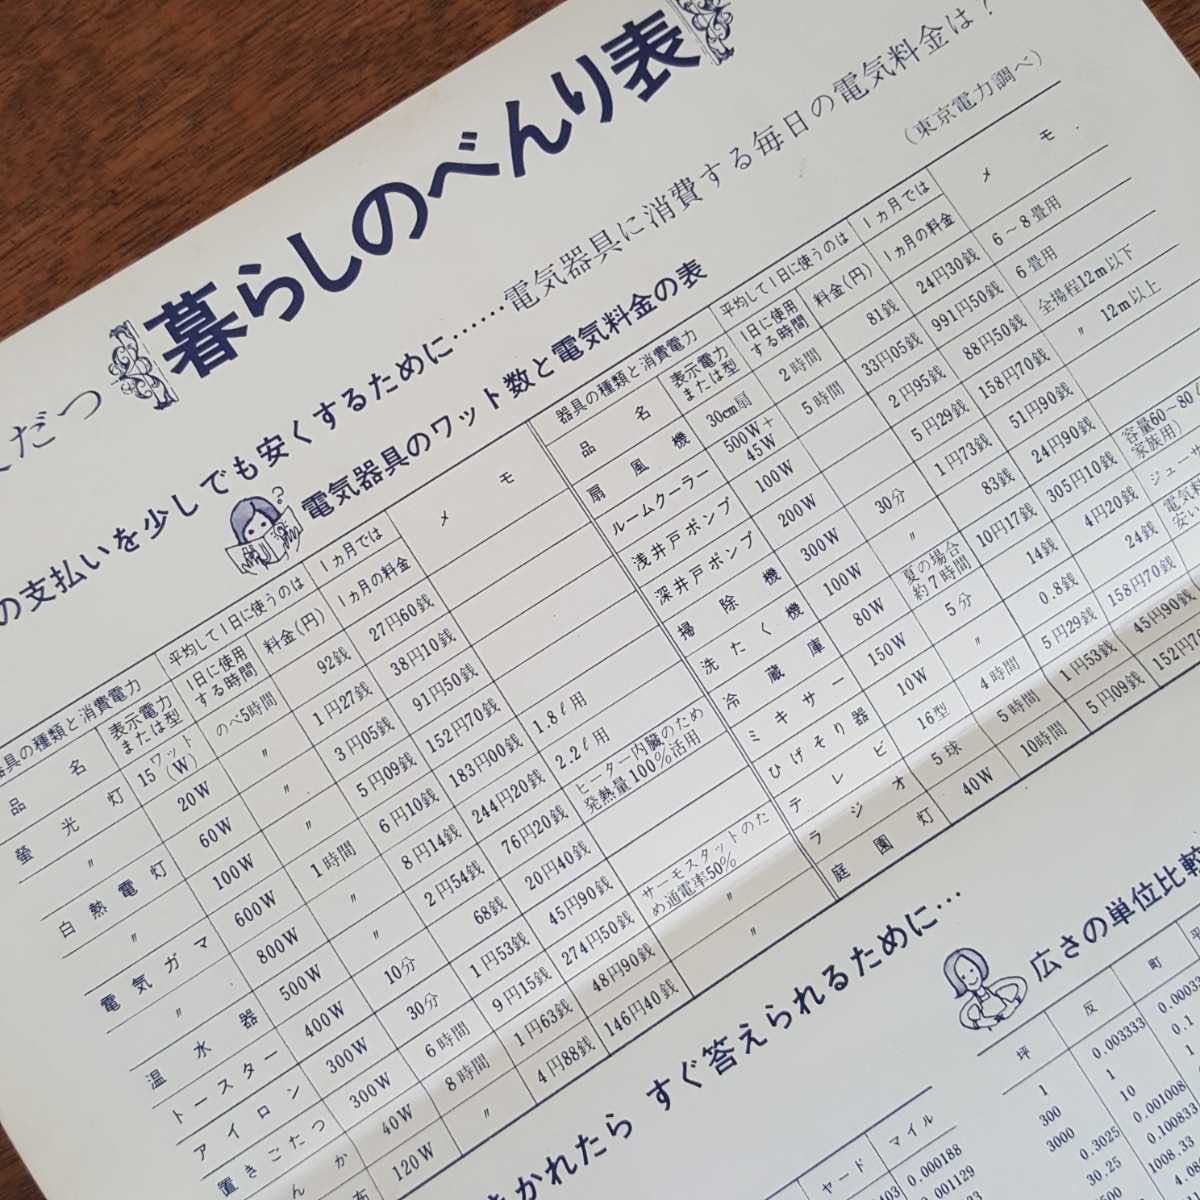 くだつ
暮らしのべんり表
の支払いを少しでも安くするために……電気器具に消費する毎日の電気料金は?
(東京電力調べ)
電気器具のワット数と電気料金の表
器具の種類と消費電力 平均して1日に使うのは 1ヵ月では メモ
品名 表示電力または型 1日に使用する時間 料金(円) 1ヵ月の料金
螢光灯 15ワット(W) のべ5時間 92銭 27円60銭
〃 20W 〃 1円27銭 38円10銭
白熱電灯 60W 〃 3円05銭 91円50銭
〃 100W 〃 5円09銭 152円70銭
電気ガマ 600W 1時間 6円10銭 183円00銭 1.8ℓ用
〃 800W 〃 8円14銭 244円20銭 2.2ℓ用
温水器 500W 〃 2円54銭 76円20銭 ヒーター内臓のため発熱量100%活用
トースター 400W 10分 68銭 20円40銭
アイロン 300W 30分 1円53銭 45円90銭
置きごたつ 300W 6時間 9円15銭 274円50銭 サーモスタットのため通電率50%
んか 40W 8時間 1円63銭 48円90銭 〃
布 120W 〃 4円88銭 146円40銭 〃
器具の種類と消費電力 平均して1日に使うのは 1ヵ月では メモ
品名 表示電力または型 1日に使用する時間 料金(円) 1ヵ月の料金
扇風機 30cm扇 2時間 81銭 24円30銭 6〜8畳用
ルームクーラー 500W+45W 5時間 33円05銭 991円50銭 6畳用
浅井戸ポンプ 100W 2円95銭 88円50銭 全揚程12m以下
深井戸ポンプ 200W 5円29銭 158円70銭 〃 12m以上
掃除機 300W 30分 1円73銭 51円90銭
洗たく機 100W 〃 83銭 24円90銭
冷蔵庫 80W 夏の場合約7時間 10円17銭 305円10銭 容量60〜80 家族用)
ミキサー 150W 5分 14銭 4円20銭 ジューサ
ひげそり器 10W 〃 0.8銭 24銭 電気料 安い
テレビ 16型 4時間 5円29銭 158円70銭
ラジオ 5球 5時間 1円53銭 45円90銭
庭園灯 40W 10時間 5円09銭 152円7
きかれたら すぐ答えられるために…
ヤード マイル
0.000188
001129
広さの単位比較
坪 反 町
1 0.003333 0.00033
300 1 0.1
3000 10 1
0.3025 0.001008
30.25 0.100833
1008.33